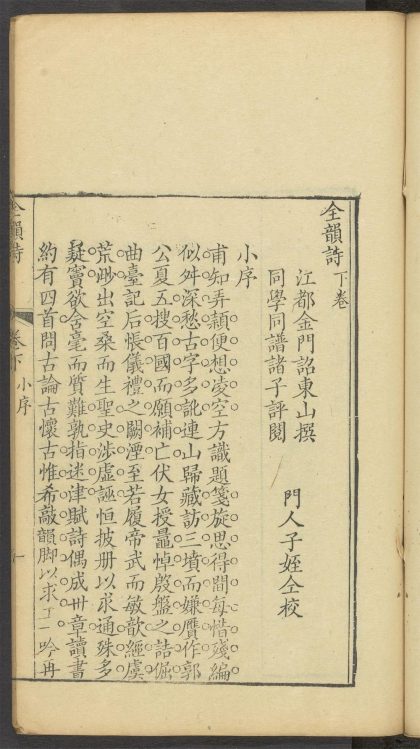 全韻詩 下卷
江都金門詔東山撰
同學同譜諸子評閱
門人子姪仝校
小序
甫知弄穎便想凌空方識題箋旋思得間每惜殘編
似舛深愁古字多訛連山歸藏訪三墳而嫌贋作郭
公夏五搜百國而願補亡伏女授鼂悼殷盤之詰倔
曲臺記后悵儀禮之闕湮至若履帝武而敏歆經虞
荒眇出空桑而生聖史涉虛誣恒披册以求通殊多
疑竇欲含毫而質難孰指迷津賦詩偶成卅章讀書
約有四首問古論古懷古惟希敲韻脚以求工一吟再
全韻詩
卷下
小序
一